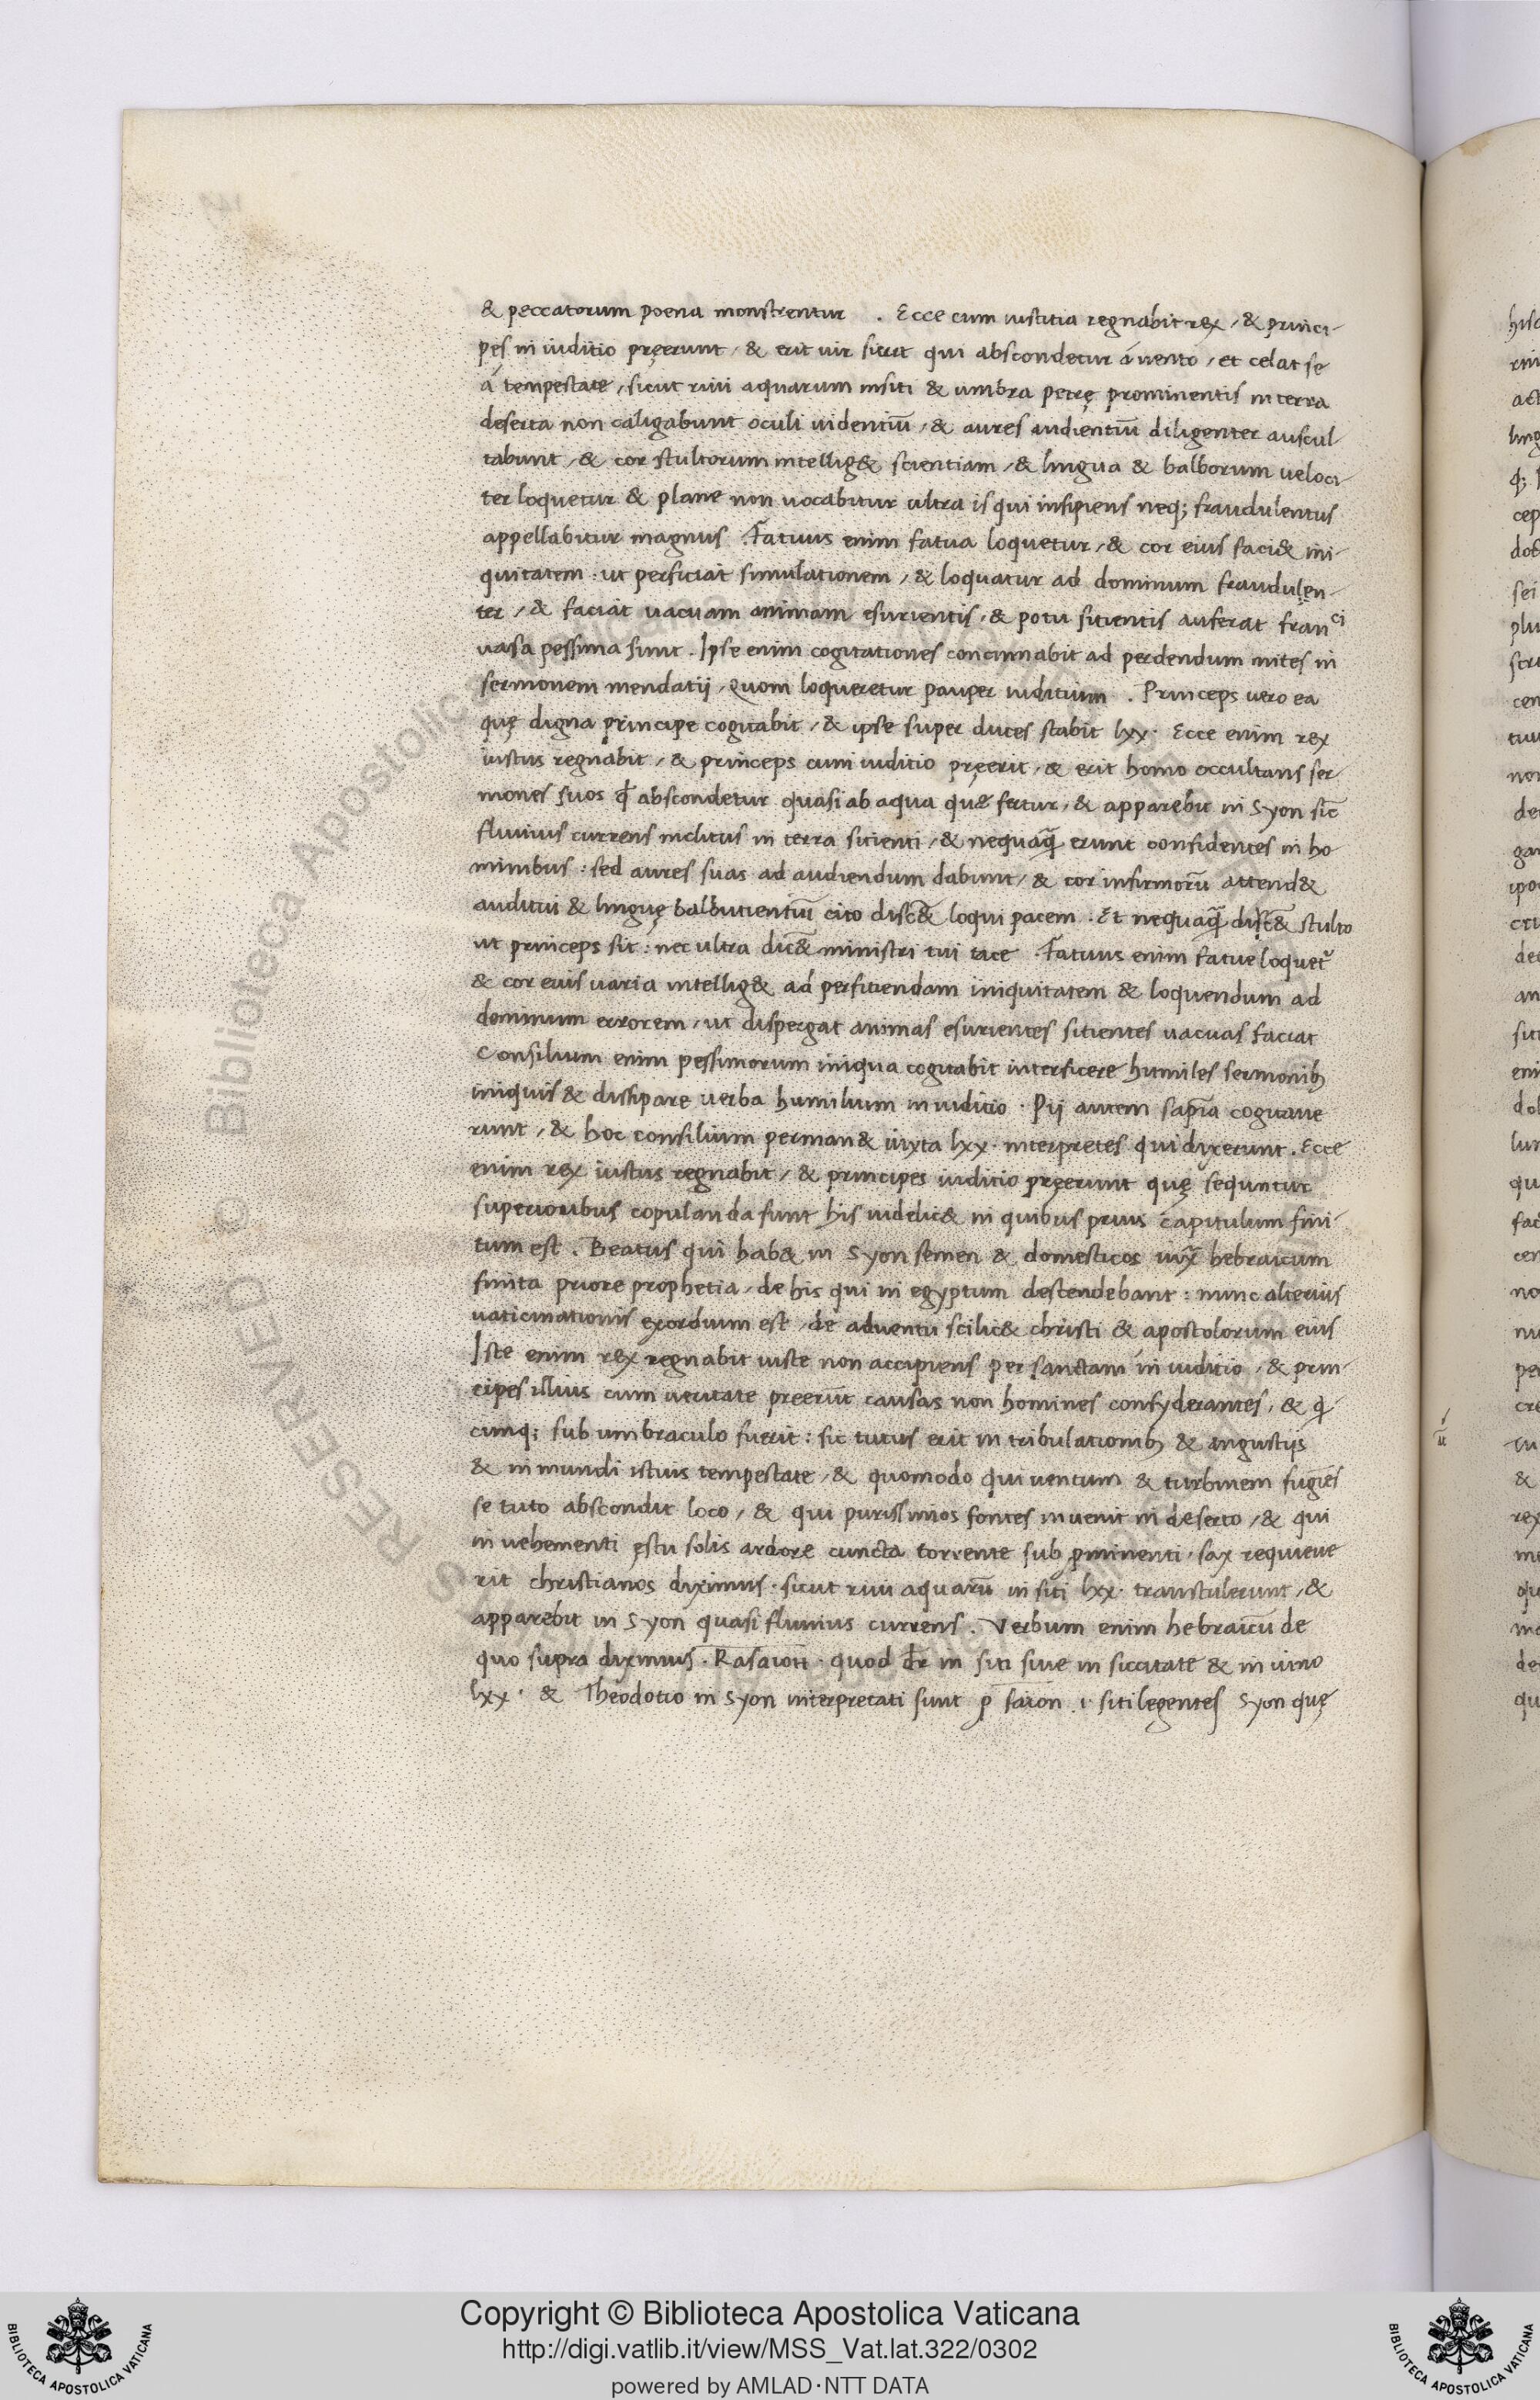 & peccatorum poena monstrentur . Ecce cum iustitia regnabit rex / & princi-
pes in iuditio pręerunt / & erit uir sicut qui abscondetur á uento / et celat se
á tempestate / sicut riui aquarum in siti & umbra petrę prominentis in terra
deserta non caligabunt oculi uidentiū / & aures audientiū diligenter auscul-
tabunt / & cor stultorum intellig& scientiam / & lingua & balborum ueloci-
ter loquetur & plane non uocabitur ultra is qui insipiens neq; fraudulentus
appellabitur magnus . Fatuus enim fatua loquetur / & cor eius faci& ini-
quitatem . ut perficiat simulationem / & loquatur ad dominum fraudulen-
ter / & faciat uacuam animam esurientis / & potu sitientis auferat franci
uasa pessima sunt . Ipse enim cogitationes concinnabit ad perdendum mites in
sermonem mendatij / quom loqueretur pauper iuditium . Princeps uero ea
quę digna principe cogitabit / & ipse super duces stabit lxx · Ecce enim rex
iustus regnabit / & princeps cum iuditio pręerit / & erit homo occultans ser-
mones suos & abscondetur quasi ab aqua quę fertur / & apparebit in Syon sic̄
fluuius currens inclitus in terra sitienti / & nequaq̃ erunt confidentes in ho
minibus : sed aures suas ad audiendum dabunt / & cor infirmorū attend&
auditui & linguę balbutientiū cito disc& loqui pacem . Et nequaq̃ dic& stulto
ut princeps sit : nec ultra dic& ministri tui tace . Fatuus enim fatue loquet᷑
& cor euis uaria intellig& ad perfitiendam iniquitatem & loquendum ad
dominum errorem / ut dispergat animas esurientes sitientes uacuas faciat
Consilium enim pessimorum iniqua cogitabit interficere humiles sermonib;
iniquis & dissipare uerba humilium in iuditio . Pij autem sapīa cogitaue
runt / & hoc consilium perman& iuxta lxx · interpretes qui dixerunt . Ecce
enim rex iustus regnabit / & principes iuditio pręerunt quę sequntur
superioribus copulanda sunt his uidelic& in quibus prius capitulum fini-
tum est . Beatus qui hab& in Syon semen & domesticos iux̄ hebraicum
finita priore prophetia / de his qui in egyptum descendebant : nunc alterius
uaticinationis exordium est / de aduentu scilic& christi & apostolorum eius
Iste enim rex regnabit iuste non accipiens per sanctam in iuditio / & prin-
cipes illius cum ueritate preerūt causas non homines consyderantes / & q
cunq; sub umbraculo fuerit : sic tutus erit in tribulationib; & angustijs
& in mundi istius tempestate / & quomodo qui uentum & turbinem fugiēs
se tuto abscondit loco / & qui purissimos fontes inuenit in deserto / & qui
in uehementi ęstu solis ardore cuncta torrente sub ꝓminenti / sax requieue
rit christianos diximus . sicut riui aquarū in siti lxx · transtulerunt / &
apparebit in Syon quasi fluuius currens . Verbum enim hebraicū de
quo supra diximus . Rasaion . quod dr̄ in siti siue in siccitate & in uino
lxx · & Theodotio in Syon interpretati sunt ꝓ saion .i· siti legentes Syon quę
© Biblioteca Apostolica Vaticana
Copyright © Biblioteca Apostolica Vaticana
http://digi.vatlib.it/view/MSS_Vat.lat.322/0302
powered by AMLAD·NTT DATA
BIBLIOTECA APOSTOLICA VATICANA
BIBLIOTECA APOSTOLICA VATICANA